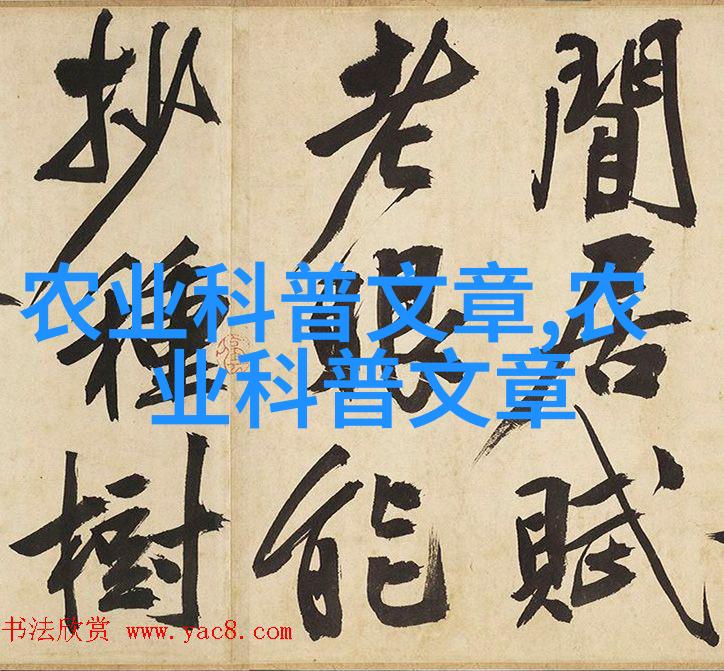 閒居賦
老眼能
抄種樹
农业科普文章,农
业科普文章
书法欣赏 www.yac8.com